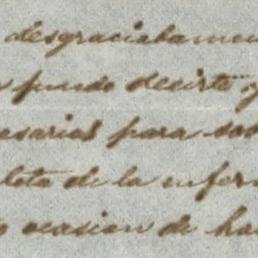 desgraciadamen
puedo decirte
esarias para
leta de la enfer
ocasion de ha